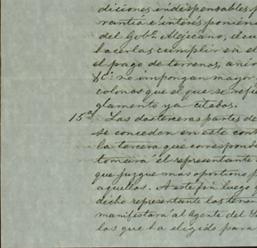 diciones indispensables p
rantia é interés ponien
del Gobº. Mejicano, el cu
hacerlas cumplir en el
el pago de terrenos, a
&ª. no impongan mayor
colonos que el que se refie
glamento ya citados.
15ª. Las dos terceras partes de
se conceden en este cont
la tercera que corresponde
tomará el representante
que juzgue mas oportuno p
aquellos. A este fin luego q
dicho representante los terre
manifestará al Agente del
los que ha elegido para